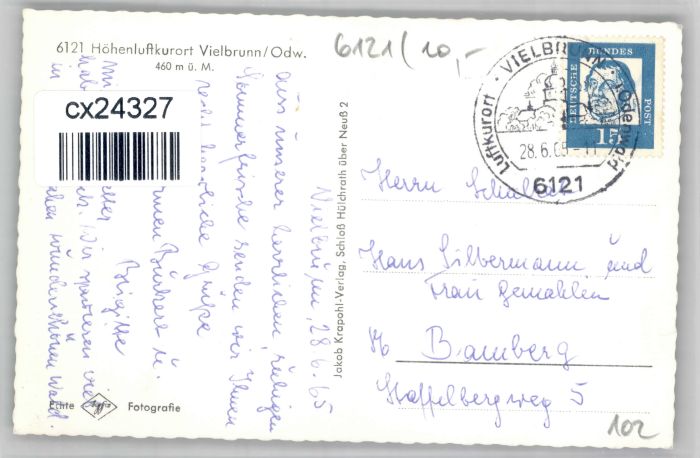 6121 Höhenluftkurort Vielbrunn/Odw.
460 m ü. M.
6121/10,-
cx24327
Vielbrunn, 28.6.65
Aus unserer herrlichen, ruhigen
Sommerfrische senden wir Ihnen
recht herzliche Grüße
Burkert u.
Brigitte
Wir spazieren viel
in wunderschönen Wald.
Echte Agfa Fotografie
Jakob Krapohl-Verlag, Schloß Hülchrath über Neuß 2
Luftkurort · VIELBRUNN · Odenwald
28.6.65-11
6121
DEUTSCHE BUNDES POST
15
Herrn Schul
Hans Silbermann und
Frau Gemahlin
Bamberg
Staffelbergweg 5
102